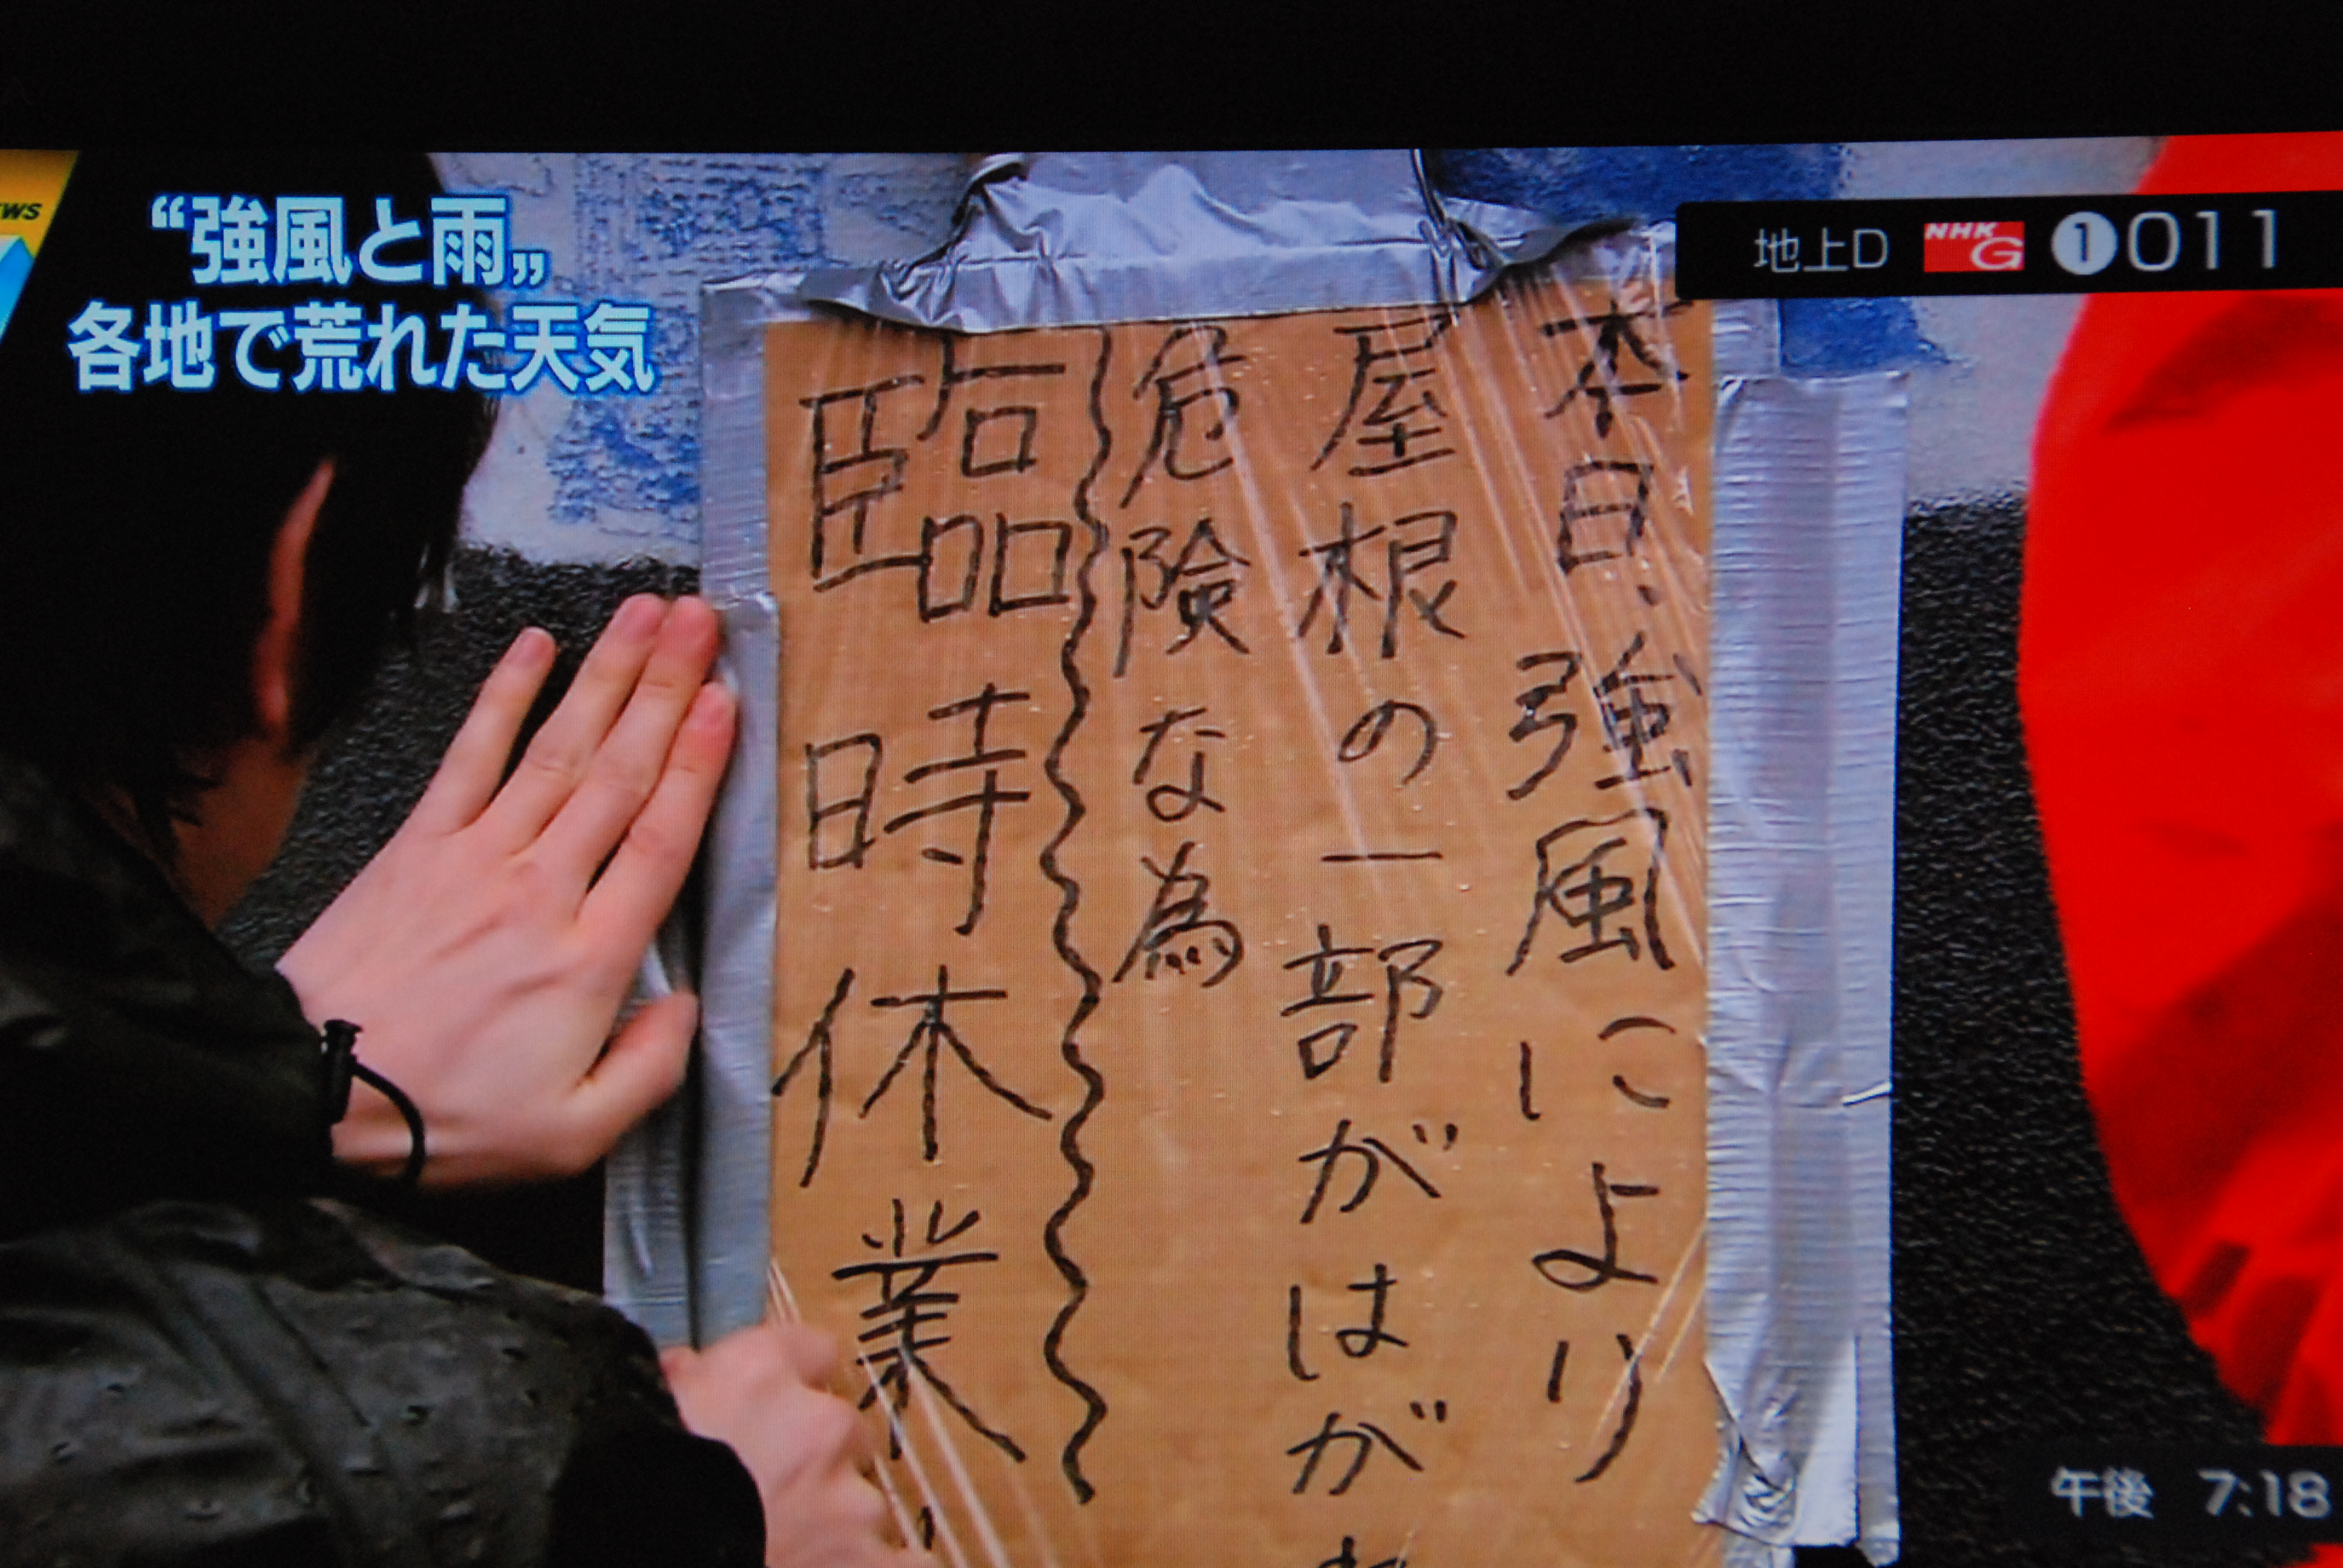 “強風と雨„
各地で荒れた天気
地上D NHK G 1 011
本日、強風により
屋根の一部がはが
危険な為
臨時休業
午後 7:18